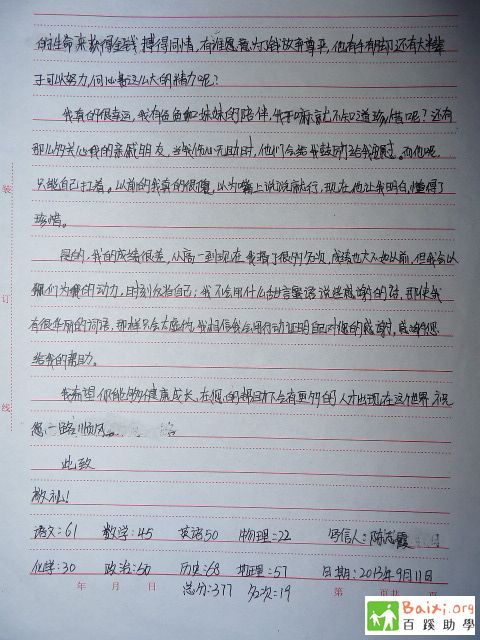 的生命来换得金钱,搏得同情,有谁愿意为了钱放弃尊严,他有手有脚还有大辈
子可以努力,何必费这么大的精力呢?
我真的很幸运,我有爸爸和妹妹的陪伴,我干嘛就不知道珍惜呢?还有
那么多关心我的亲戚朋友,当我伤心无助时,他们会给我鼓励给我。而他呢,
只能自己扛着。以前的我真的很傻,以为嘴上说说就行,现在他让我明白,懂得了
珍惜。
是的,我的成绩很差,从高一到现在我掉了很多名次,成绩也大不如从前,但我会以
你们为我的动力,时刻反省自己;我不会用什么甜言蜜语说些感谢的话,即使我
有很华丽的词语,那样只会太虚伪,我相信我会用行动证明自己对您的感谢,感谢您
给我的帮助。
我希望你能够健康成长,在您的帮助下会有更多的人才出现在这个世界,祝
您一路顺风。
此致
敬礼!
语文:61 数学:45 英语50 物理:22 写信人:陈志霞
化学:30 政治:50 历史:68 地理:57 日期:2013年9月11日
总分:377 名次:19
年 月 日 第 页共 页
装
订
线
Baixi.org
百蹊助學